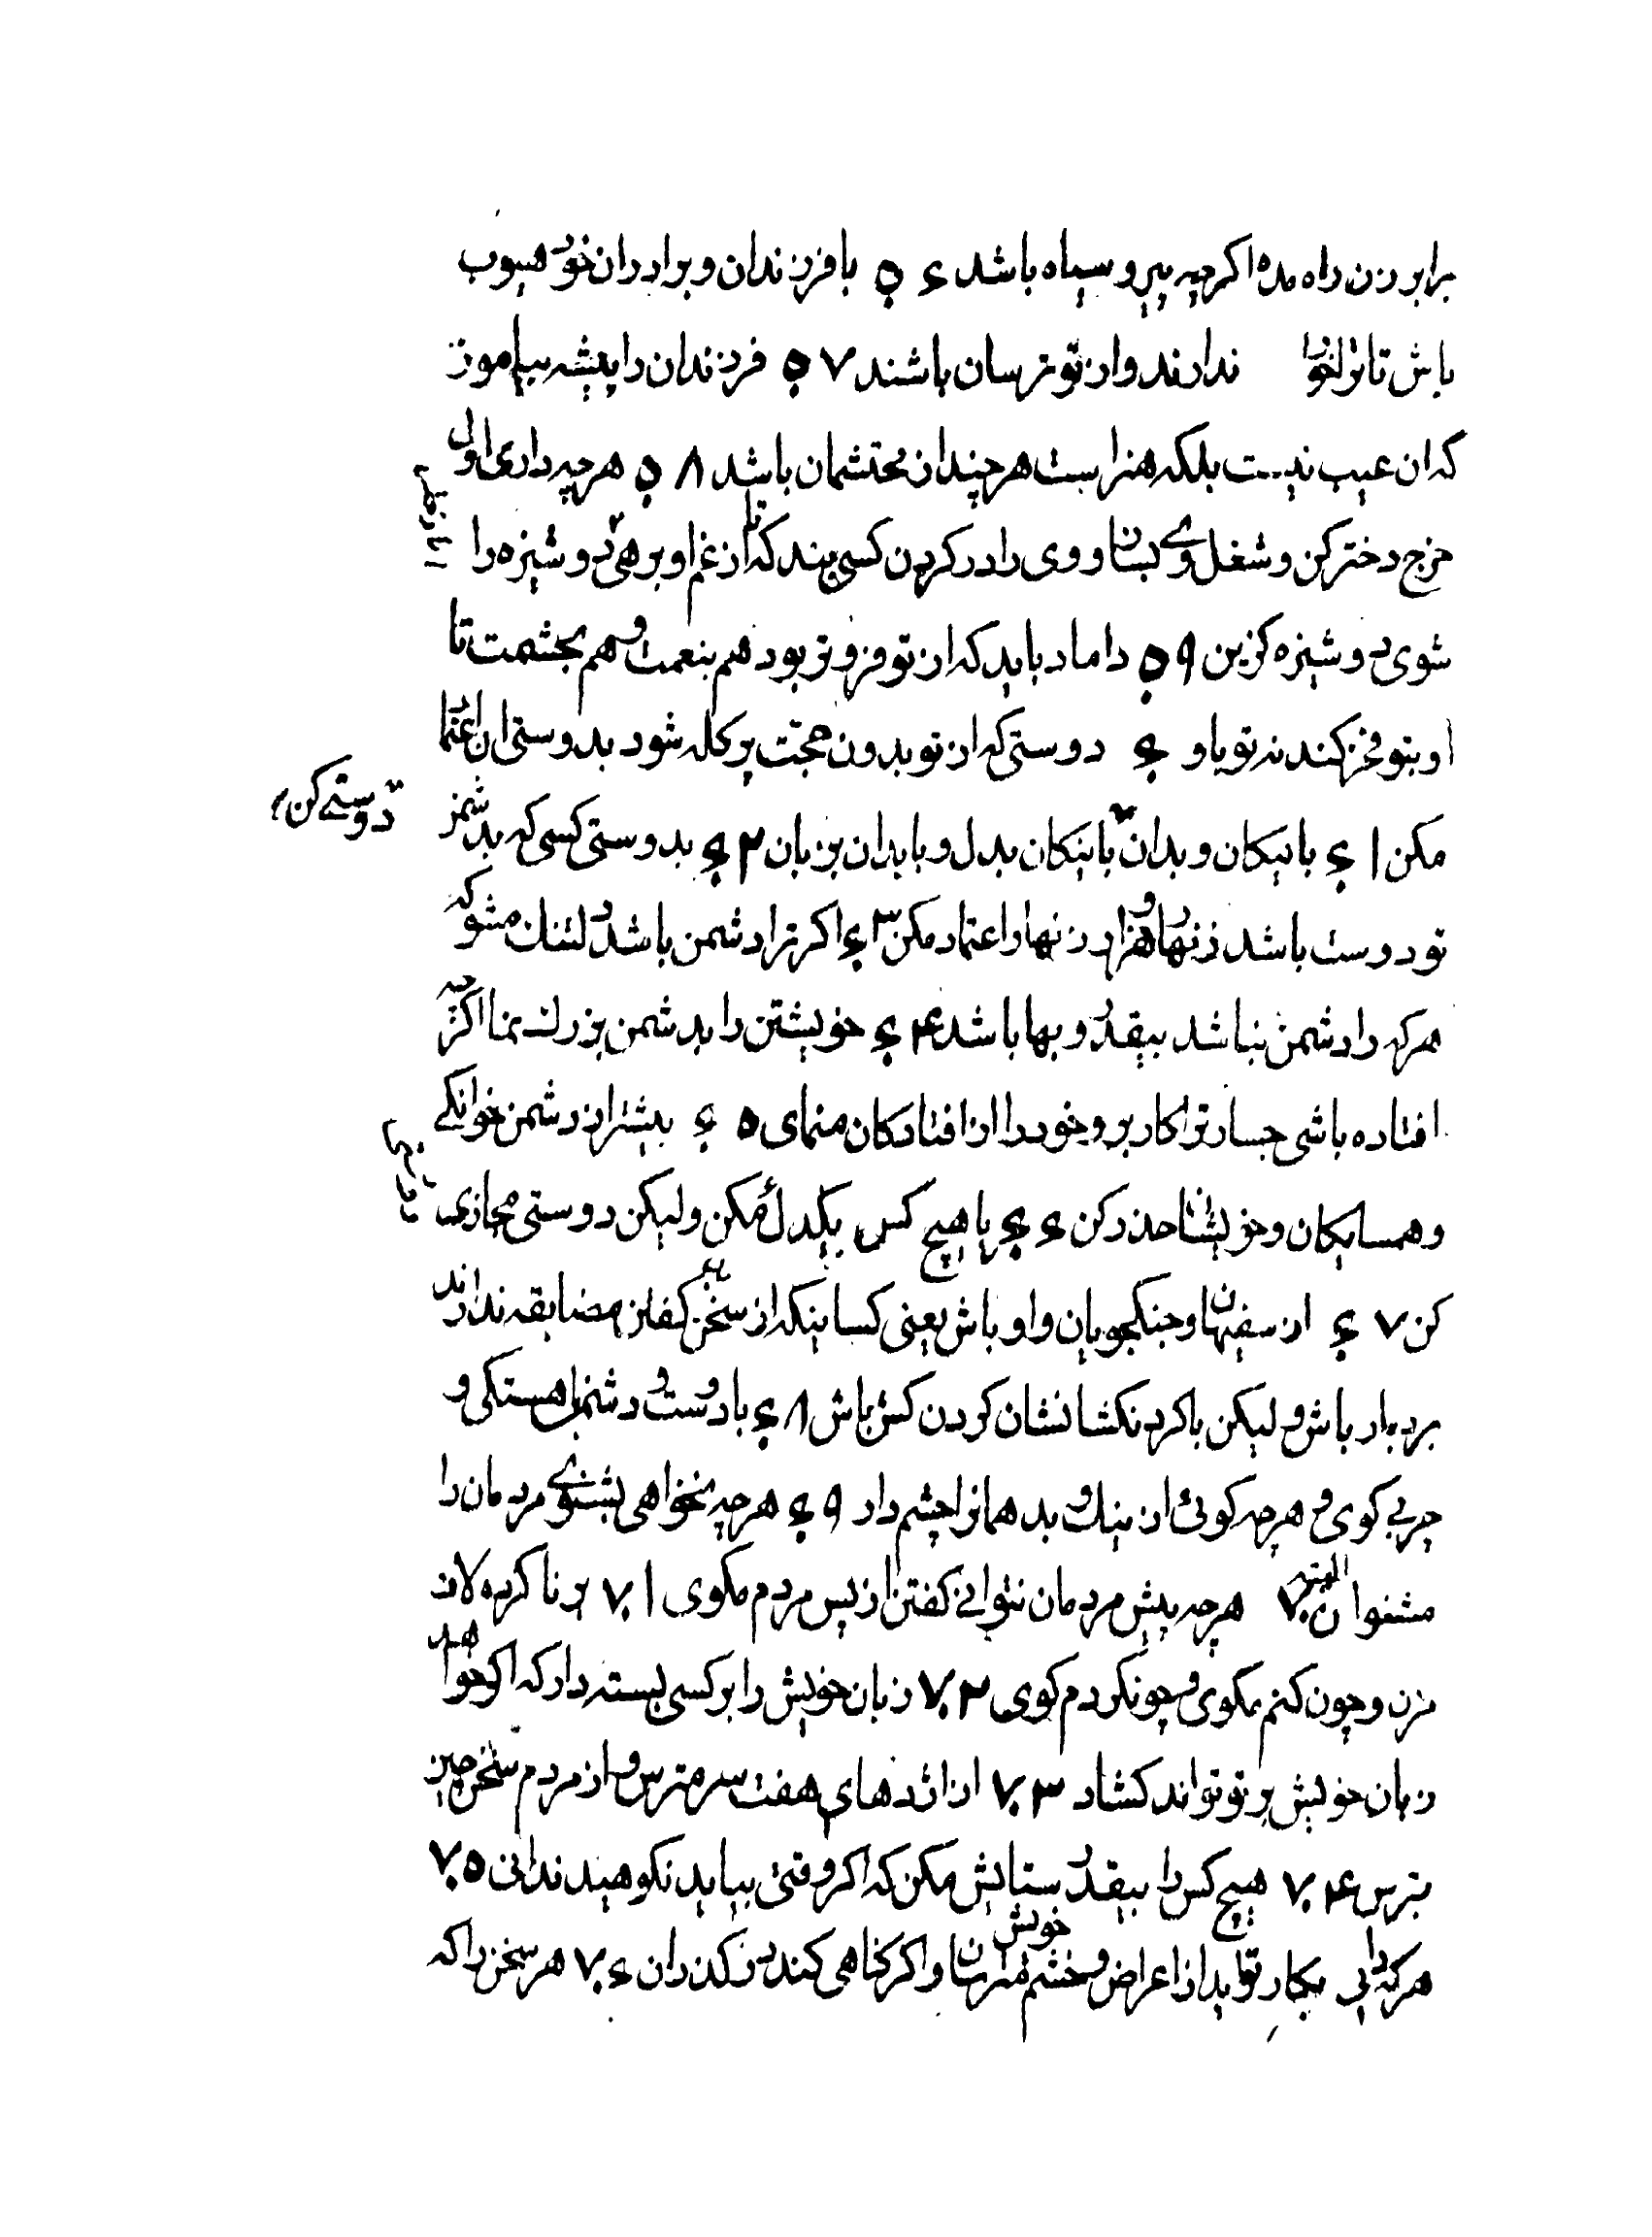 برابر زن راه مده اکرچه پیر و سیاه باشد ۵۶ با فرزندان و برادران خود هیوب
باش تا ترا خوار ندارند و از تو ترسان باشند ۵۷ فرزندان را پیشه بیاموز
که ان عیب نیست بلکه هنر است هر چند از محتشمان باشد ۵۸ هرچه داری اول
خرج دختر کن و شغل وی بساز و وی را در کردن کسی بند که تا از غم او برهی دوشیزه را
شوی دوشیزه کزین ۵۹ داماد باید که از تو فروتر بود هم بنعمت و هم بحشمت تا
او بتو فخر کند نه تو باو ۶۰ دوستی که از تو بدون حجت پر کله شود بدوستی ان اعتماد
مکن ۶۱ با نیکان و بدان دوستی کن با نیکان بدل و با بدان بزبان ۶۲ بدوستی کسی که بدشمن
تو دوست باشد زنهار و هزار زنهار اعتماد مکن ۶۳ اکر ترا دشمن باشد دلتنك مشو که
هرکه را دشمن نباشد بیقدر و بها باشد ۶۴ خویشتن را بدشمن بزرك نما اکرچه
افتاده باشی جسارت را کار بر و خود را از افتادکان منمای ۶۵ بیشتر از دشمن خوانکی
و همسایکان و خویشان حذر کن ۶۶ با هیچ کس یکدل مکن ولیکن دوستی مجازی
کن ۶۷ از سفیهان و جنکجویان و اوباش یعنی کسانیکه از سخن کفتن مضایقه ندارند
بردبار باش ولیکن با کردنکشان نشان کردن کش باش ۶۸ با دوست و دشمن اهستکی و
چربی کوی و هرچه کوئی از نیك و بد همانرا چشم دار ۶۹ هرچه نخواهی بشنوی مردمان را
مشنوان ۷۰ هرچه پیش مردمان نتوانی کفتن از پس مردم مکوی ۷۱ بر ناکرده لاف
مزن و چون کنم مکوی و چونکردم کوی ۷۲ زبان خویش را بر کسی بسته دار که اکر خواهد
زبان خویش بر تو تواند کشاد ۷۳ از اژدهای هفت سر مترس و از مردم سخن چین
بترس ۷۴ هیچ کس را بیقدر ستایش مکن که اکر وقتی بیاید نکوهید ندانی ۷۵
هر که دانی بکار تو اید از اعراض و خشم خویش مترسان و اکر کناهی کند در کذران ۷۶ هر سخن را که